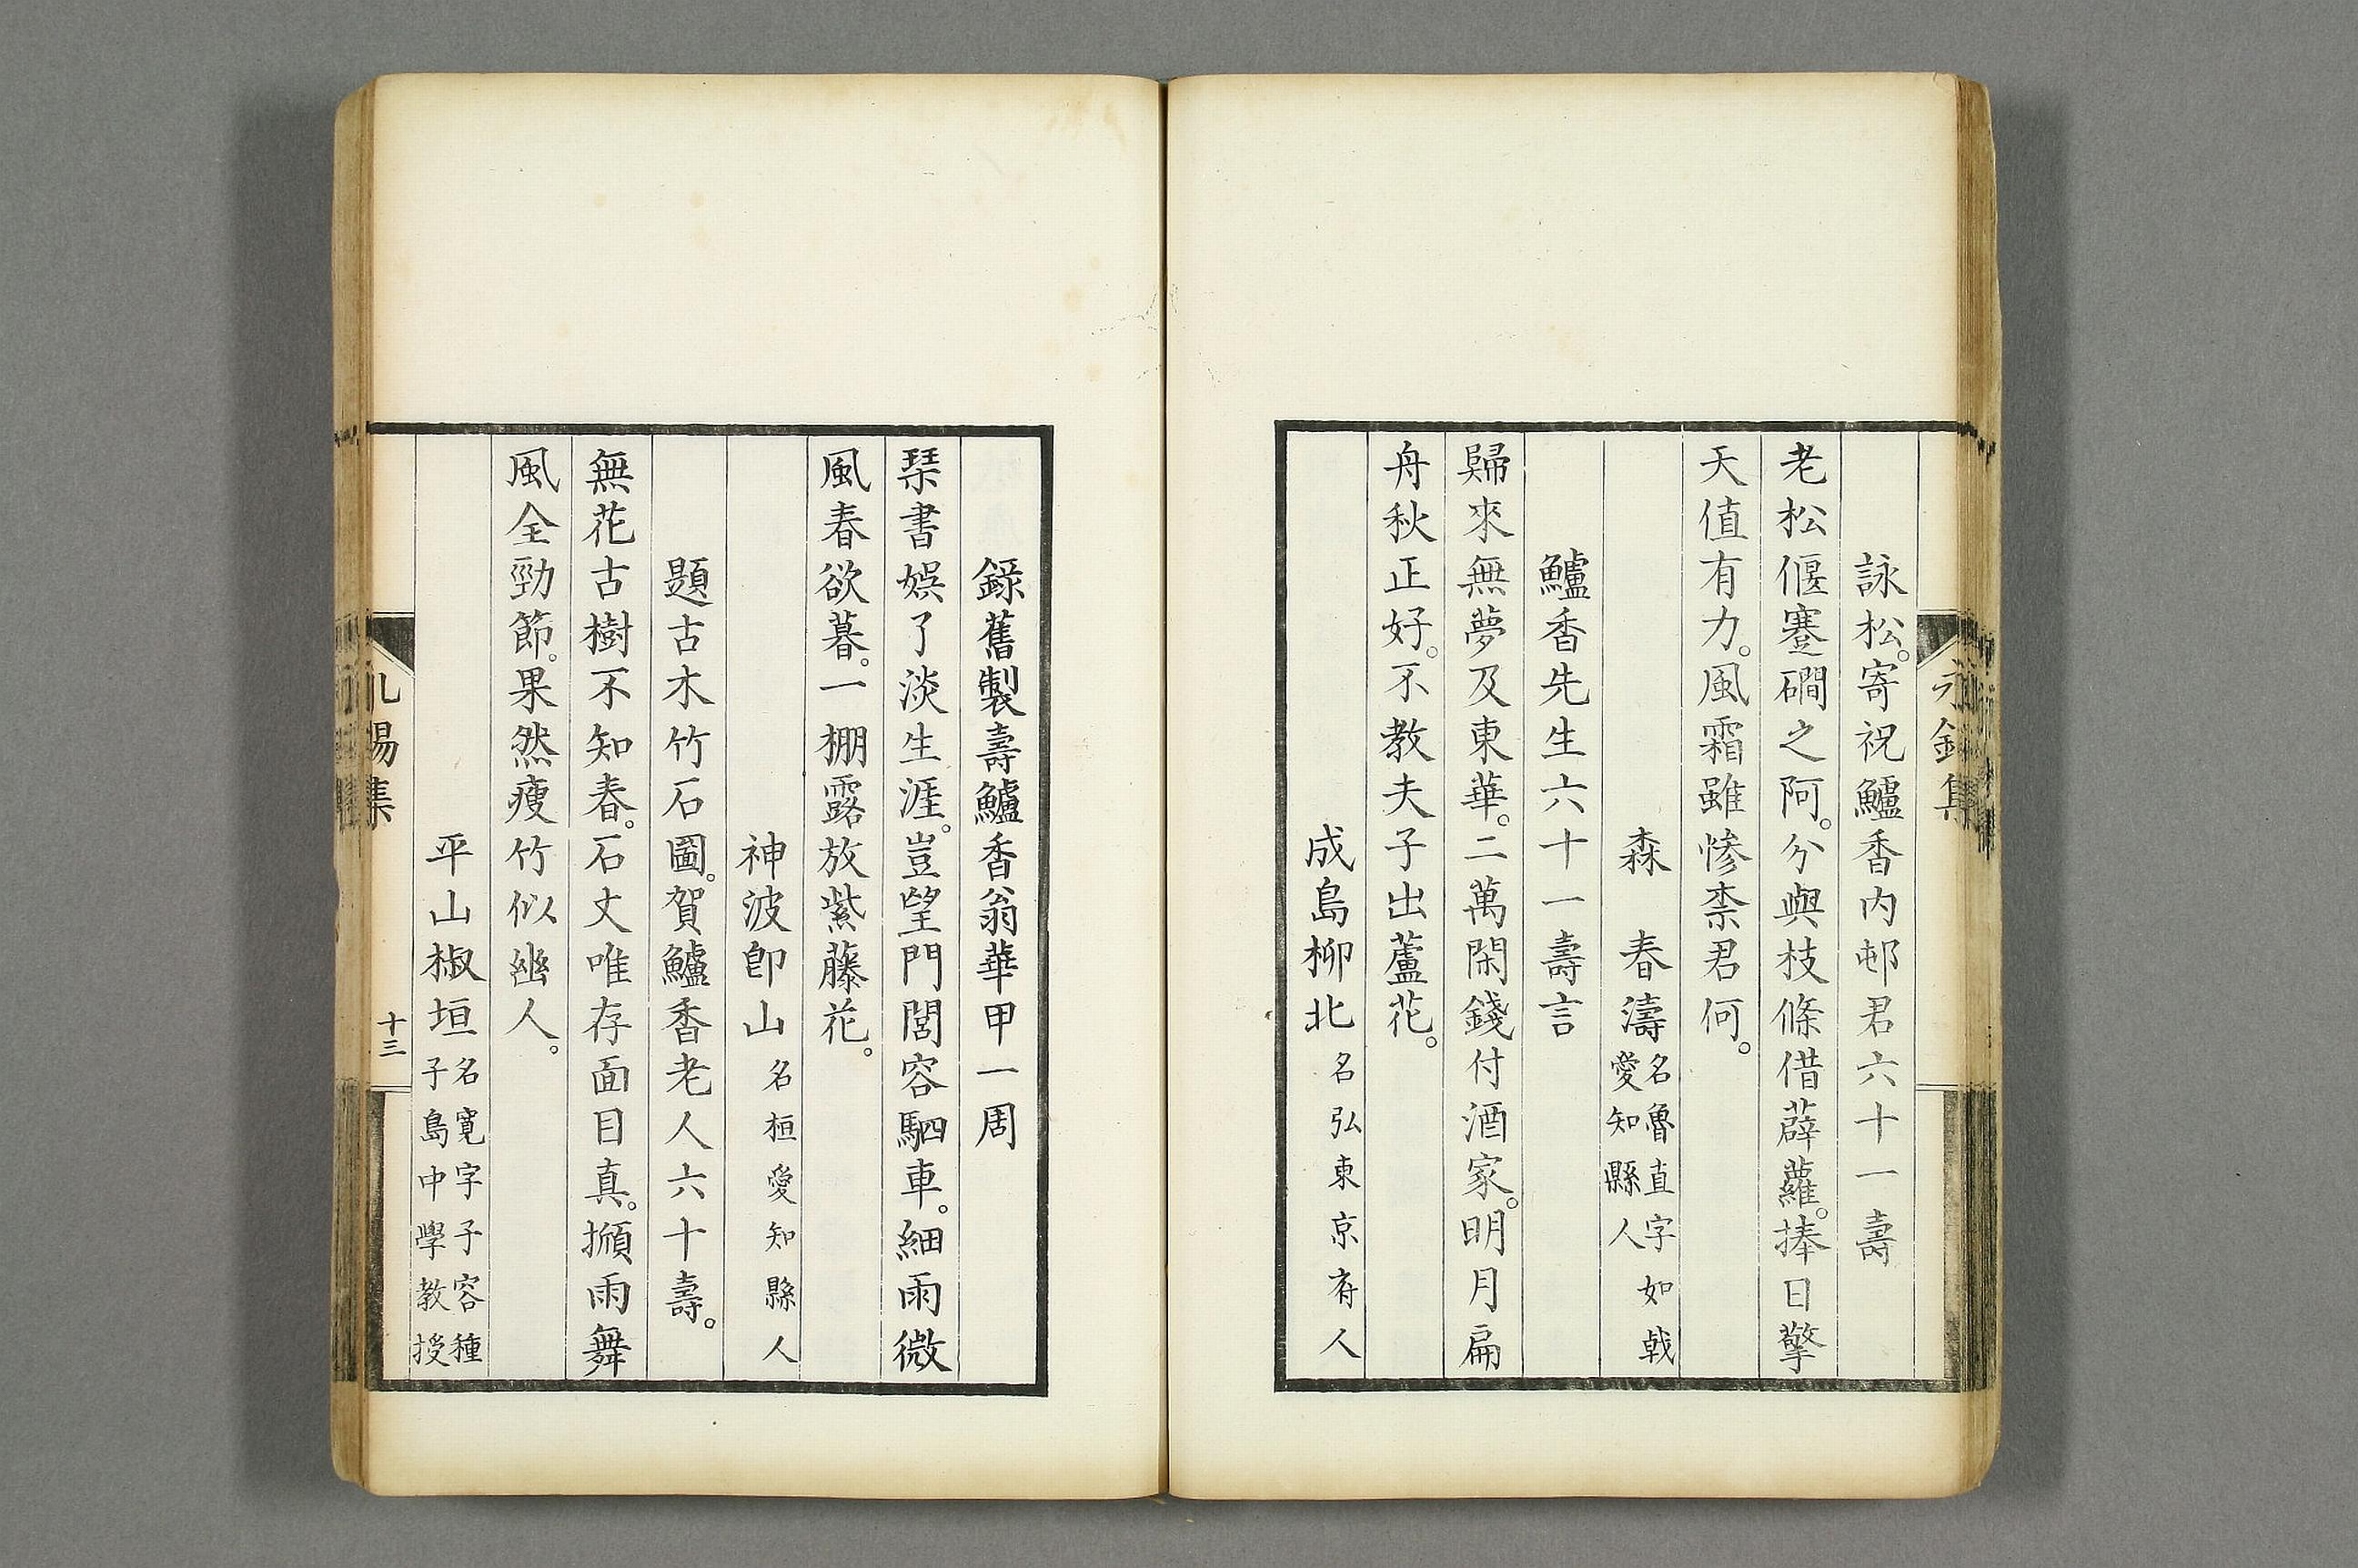 詠松。寄祝鱸香内邨君六十一壽
老松偃蹇磵之阿。分與枝條借薜蘿。捧日擎
天値有力。風霜雖惨柰君何。
森　春濤名魯直字如戟愛知縣人
鱸香先生六十一壽言
歸來無夢及東華。二萬閑錢付酒家。明月扁
舟秋正好。不教夫子出蘆花。
成島柳北名弘東京府人
錄舊製壽鱸香翁華甲一周
琹書娯了淡生涯。豈望門閭容駟車。細雨微
風春欲暮。一棚露放紫藤花。
神波卽山名桓愛知縣人
題古木竹石圖。賀鱸香老人六十壽。
無花古樹不知春。石丈唯存面目真。搠雨舞
風全勁節。果然痩竹似幽人。
平山椒垣名寛字子容種子島中學教授
十三